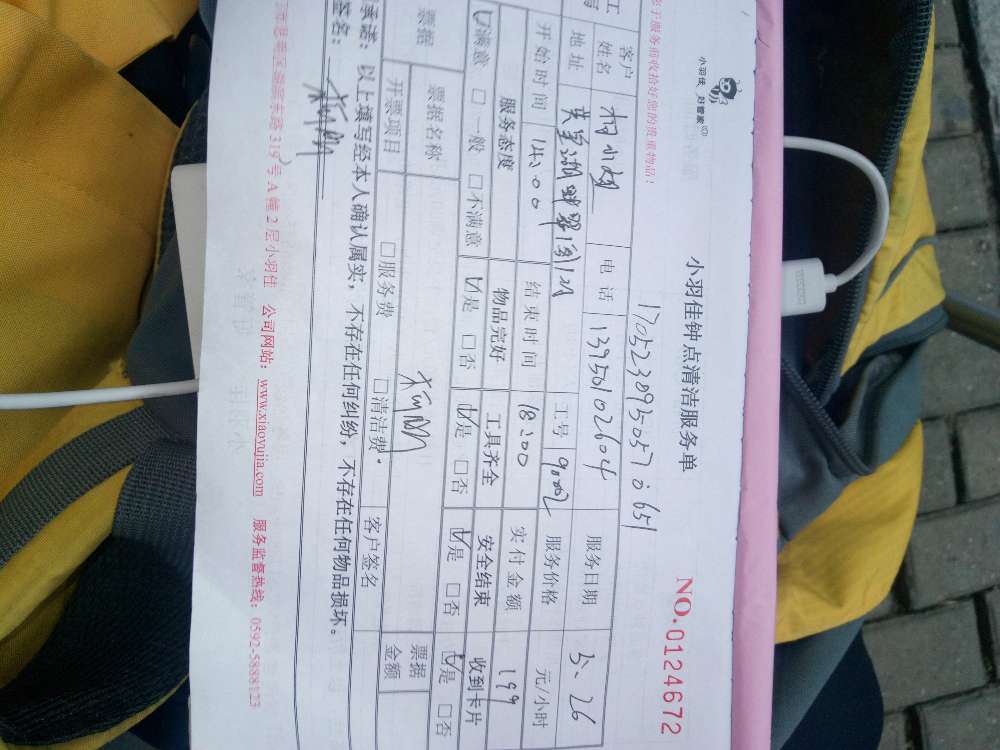 小羽佳 好管家
小羽佳钟点清洁服务单
NO.0124672
收拾好您的贵重物品!
客户姓名 电话 13950102604 服务日期 5.26
地址 工号 服务价格 元/小时
开始时间 14:00 结束时间 18:00 实付金额 199
服务态度 物品完好 工具齐全 安全结束 收到卡片
☑满意 □一般 □不满意 ☑是 □否 ☑是 □否 ☑是 □否 ☑是 □否
票据 票据名称 票据金额
开票项目 □服务费 □清洁费 客户签名
承诺:以上填写经本人确认属实,不存在任何纠纷,不存在任何物品损坏。
签名:
319号A幢2层小羽佳 公司网站:www.xiaoyujia.com 服务监督热线:0592-5888123